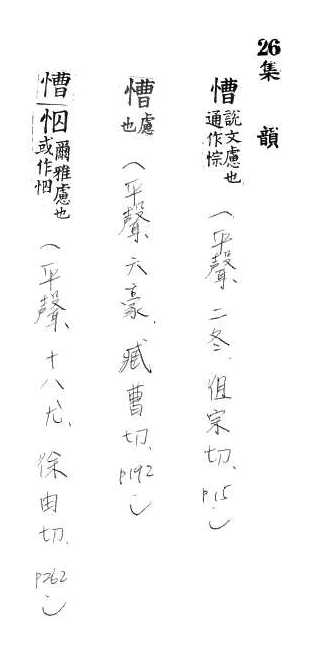 26集 韻
慒說文慮也通作悰(平聲、二冬、徂宗切、P15)
慒慮也(平聲、六豪、臧曹切、P192)
慒怞爾雅慮也或作怞(平聲、十八尤、徐由切、P262)